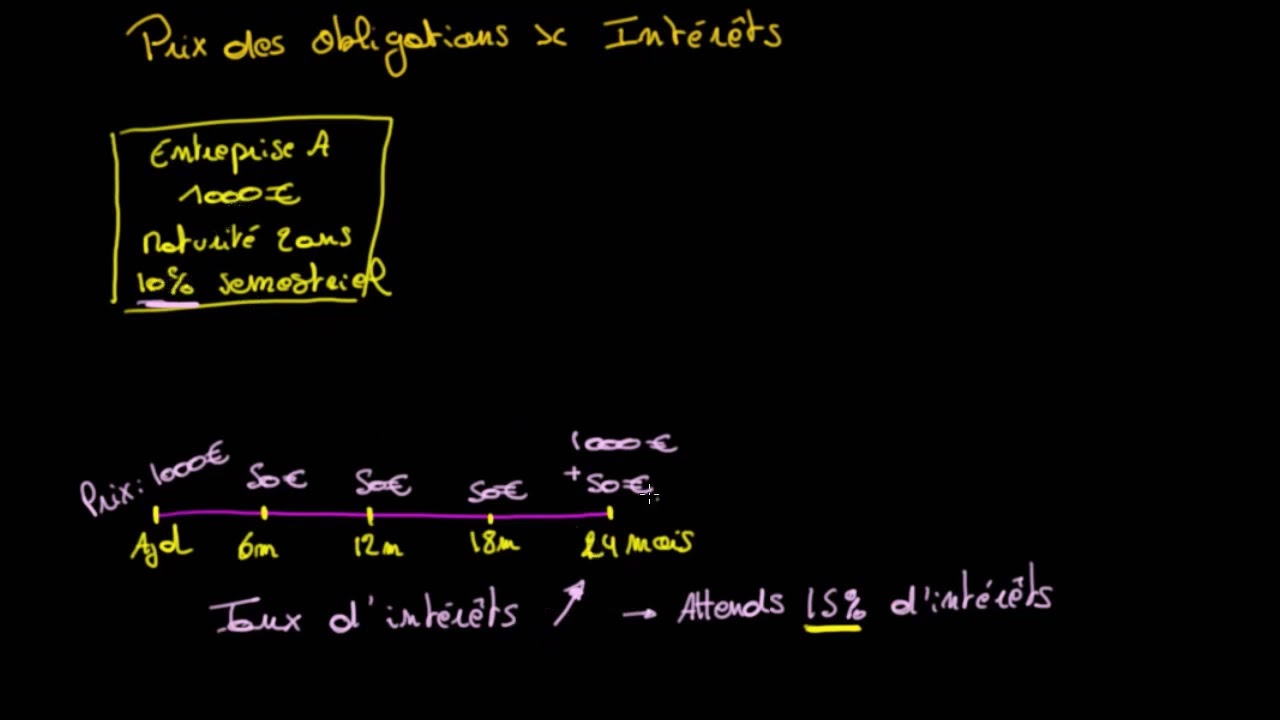 Prix des obligations x Intérêts
Entreprise A
1000€
Maturité 2ans
10% semestriel
Prix: 1000€ 50€ 50€ 50€ 1000€
+50€
Ajd 6m 12m 18m 24 mois
Taux d'intérêts ↗ → Attends 15% d'intérêts